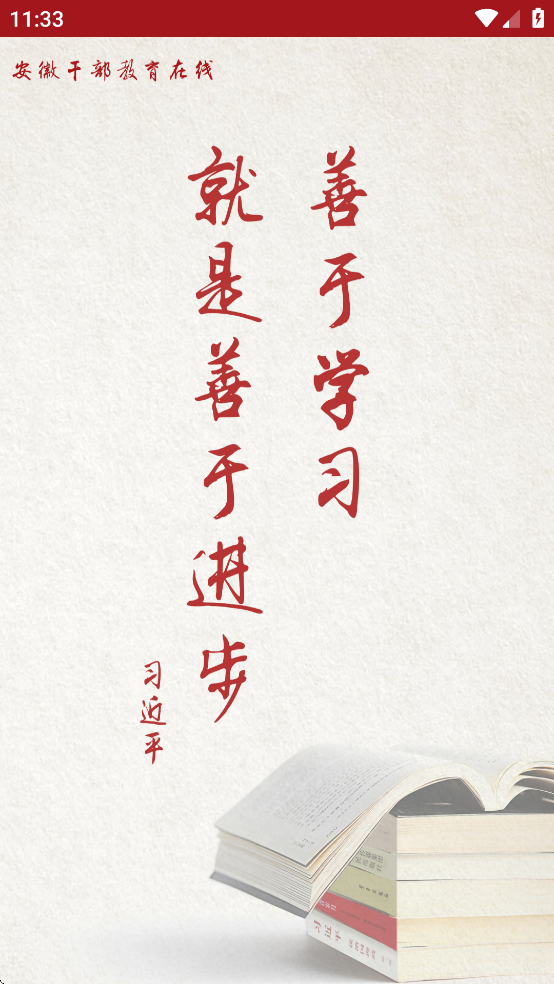 11:33
安徽干部教育在线
善于学习
就是善于进步
习近平
习近平